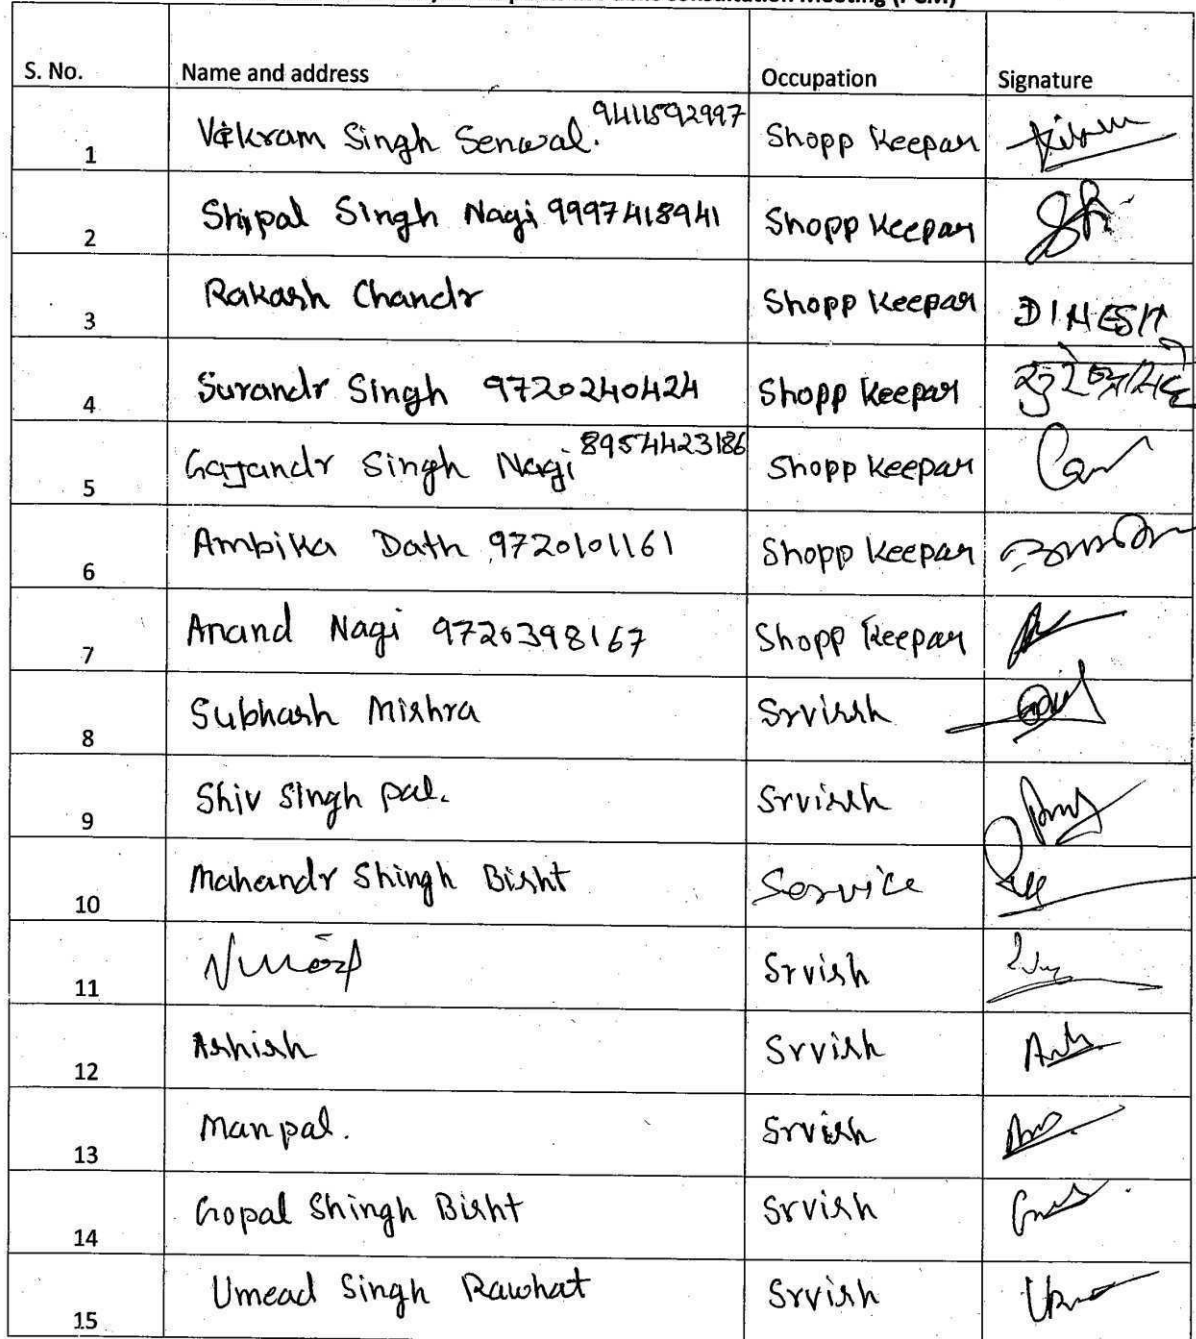 Consultation Meeting (PCM)
S. No. Name and address Occupation Signature
1 Vikram Singh Senwal. 9411592997 Shopp Keepar
2 Shipal Singh Nagi 9997418941 Shopp Keepar
3 Rakash Chandr Shopp Keepar DINESH
4 Surandr Singh 9720240424 Shopp Keepar
5 Gajandr Singh Nagi 8954423186 Shopp Keepar
6 Ambika Dath 9720101161 Shopp Keepar
7 Anand Nagi 9720398167 Shopp Keepar
8 Subhash Mishra Srvissh
9 Shiv Singh pal. Srvissh
10 Mahandr Shingh Bisht Service
11 Srvish
12 Ashish Srvish
13 Manpal. Srvish
14 Gopal Shingh Bisht Srvish
15 Umead Singh Rawhat Srvish